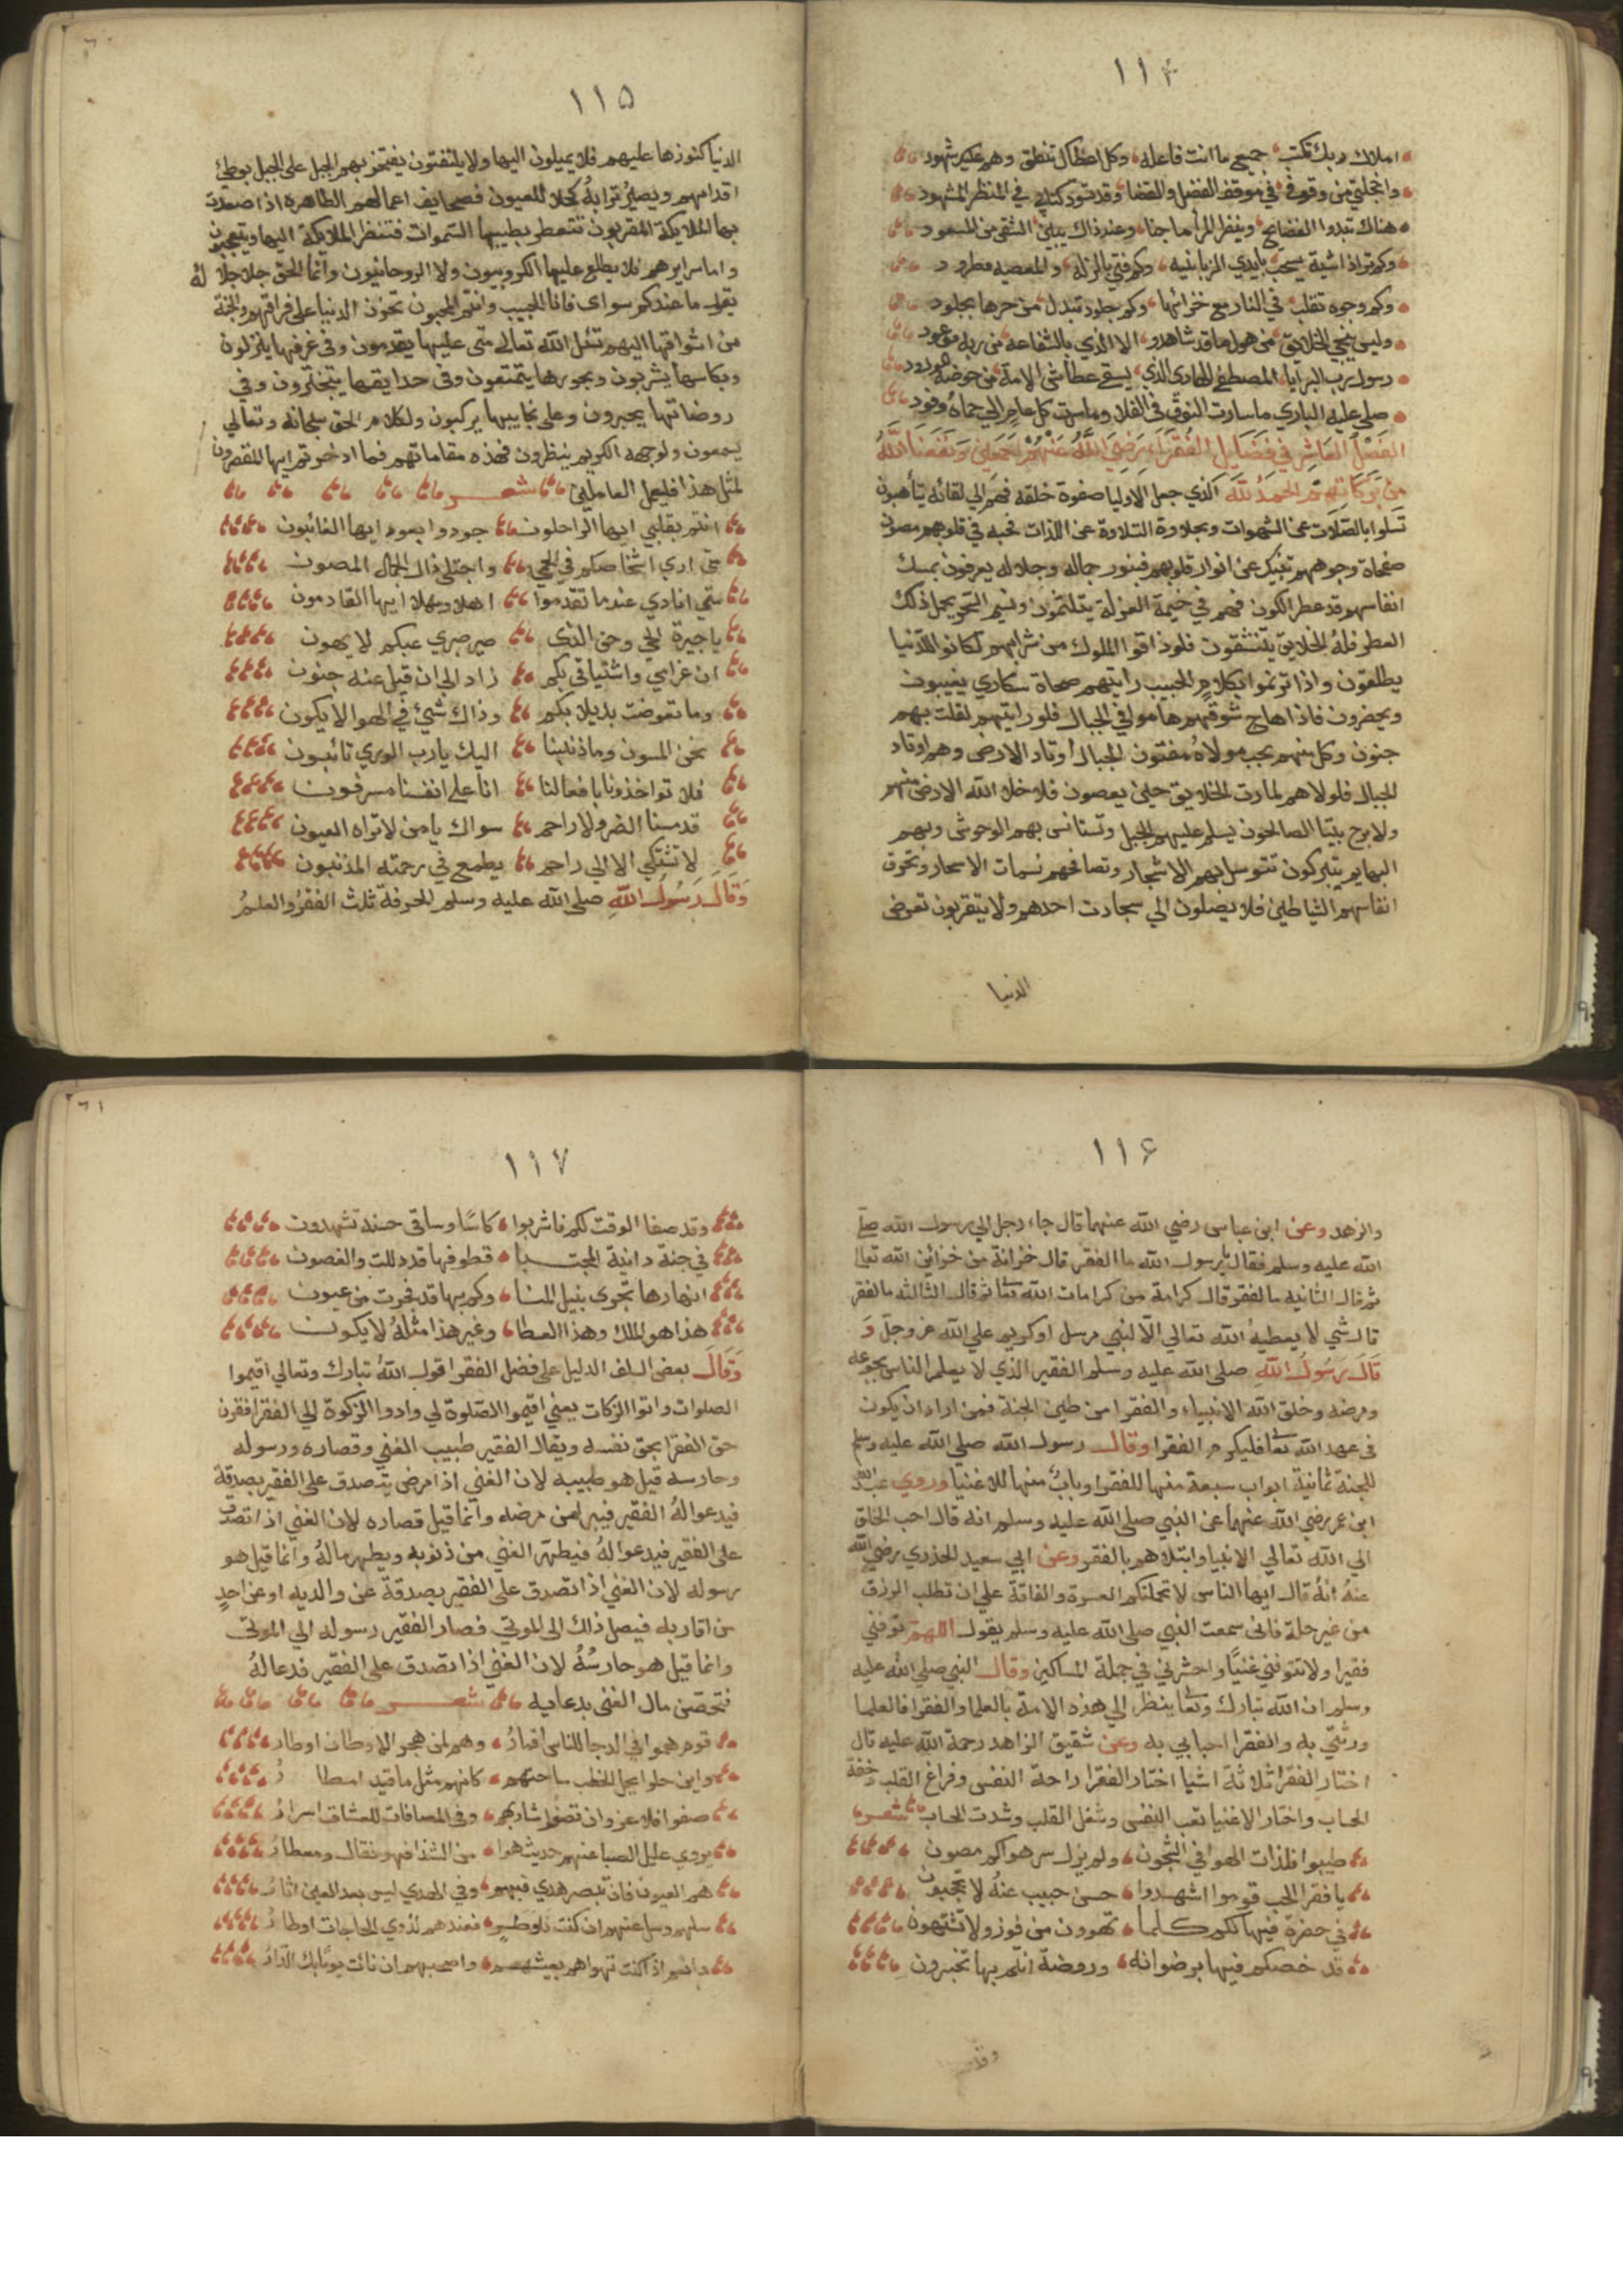 ١١٤
املاك ربك تكتب جميع ما انت فاعله وكل اعضاك تنطق وهم عليك شهود
واخجلتي من وقوفي في موقف الفصل والقضا وقد تسود كتابي في المنظر المشهود
هناك تبدوا الفضايح وينظر المرأ ما جنا وعند ذاك يبين الشقي من المسعود
وكم ترا ذا شيبة يسحب بايدي الزبانيه وكم فتي بالزلة والمعصيه مطرود
وكم وجوه تقلب في النار مع خزانها وكم جلود تبدل من حرها بجلود
وليس ينجي الخلايق من هول ما قد شاهدو الا الذي بالشفاعه من ربه موعود
رسول رب البرايا المصطفي الهادي الذي يسقي عطاشي الامة من حوضه المورود
صلي عليه الباري ما سارت النوق في الفلا وما سرت كل عام الي حماه وفود
الفصل العاشر في فضايل الفقراء رضي الله عنهم اجمعين ونفعنا الله
من بركاتهم الحمد لله الذي جعل الاوليا صفوة خلقه فهم الي لقائه يتأهبون
تسلوا بالصلات عن الشهوات وبحلاوة التلاوة عن اللذات فحبه في قلوبهم مصون
ضحاة وجوههم تخبرك عن انوار قلوبهم فبنور جماله وجلاله يعرفون بمسك
انفاسهم قد عطر الكون فهم في خيمة العزلة يتلثمون ونسيم السحر يحمل ذلك
العطر فله الخلايق يتنشقون فلو ذاقوا الملوك من شرابهم لكانوا للدنيا
يطلقون واذا ترنموا بكلام الحبيب رايتهم صحاة سكاري يغيبون
ويحضرون فاذا هاج شوقهم هاموا في الجبال فلو رايتهم لقلت بهم
جنون وكل منهم بحب مولاه مفتون الجبال أوتاد الارض وهم اوتاد
الجبال فلولاهم لمارت الخلايق حين يعصون فلا خلا الله الارض منهم
ولا برح بيتنا الصالحون يسلم عليهم الجبل وتستانس بهم الوحوش وبهم
البهايم يتبركون تتوسل بهم الاشجار وتصافحهم نسمات الاسحار وتحرق
انفاسهم الشياطين فلا يصلون الي سجادت احدهم ولا يتقربون تعرض
الدنيا
١١٥
الدنيا كنوزها عليهم فلا يميلون اليها ولا يلتفتون يفتخر بهم الجبل على الجبل بوطئ
اقدامهم ويصير ترابه كحلا للعيون فصحايف اعمالهم الطاهرة اذا صعدت
بها الملايكة المقربون تتعطر بطيبها السموات فتنظر الملايكة اليها ويتعجبون
واما سرايرهم فلا يطلع عليها الكروبيون ولا الروحانيون وانما الحق جل جلاله
يقول ما عندكم سواي فانا الحبيب وانتم المحبون تحزن الدنيا على فراقهم والجنة
من اشواقها اليهم تسئل الله تعالي متي عليها يقدمون وفي غرفها ينزلون
وبكاسها يشربون وبحورها يتمتعون وفي حدايقها يتبخترون وفي
روضاتها يحبرون وعلى نجايبها يركبون ولكلام الحق سبحانه وتعالي
يسمعون ولوجهه الكريم ينظرون فهذه مقاماتهم فما ادخرتم ايها المقصرون
لمثل هذا فليعمل العاملين شعر
انتم بقلبي ايها الراحلون جودوا بعود ايها الغائبون
متي اري اشخاصكم في الحمي واجتلي ذاك الجمال المصون
متي انادي عندما تقدموا اهلا وسهلا ايها القادمون
يا جيرة الحي وحق الذي صير صبري عنكم لا يهون
ان غرامي واشتياقي بكم زاد الي ان قيل عنه جنون
وما تعوضت بديلا بكم وذاك شئ في الهوا لا يكون
نحن المسون وما ذنبنا اليك يا رب الوري تائبون
فلا تواخذونا بافعالنا انا على انفسنا مسرفون
قد مسنا الضر ولا راحم سواك يا من لا تراه العيون
لا تشتكي الا الي راحم يطمع في رحمته المذنبون
وقال رسول الله صلى الله عليه وسلم الحرفة ثلث الفقر والعلم
١١٦
والزهد وعن ابن عباس رضي الله عنهما قال جاء رجل الي رسول الله صلي
الله عليه وسلم فقال يا رسول الله ما الفقر قال خزانة من خزائن الله تعالي
ثم قال الثانيه ما الفقر قال كرامة من كرامات الله تعا ثم قال الثالثه ما الفقر
قال شي لا يعطيه الله تعالي الا لنبي مرسل او كريم علي الله عز وجل و
قال رسول الله صلى الله عليه وسلم الفقير الذي لا يعلم الناس بجوعه
ومرضه وخلق الله الانبياء والفقرا من طين الجنة فمن اراد ان يكون
في عهد الله تعا فليكرم الفقرا وقال رسول الله صلى الله عليه وسلم
للجنة ثمانية ابواب سبعة منها للفقرا وباب منها للاغنيا وروي عبد الله
ابن عمر رضي الله عنهما عن النبي صلى الله عليه وسلم انه قال احب الخلق
الي الله تعالي الانبيا وابتلاهم بالفقر وعن ابي سعيد الخدري رضي الله
عنه انه قال ايها الناس لا تحملنكم العسرة والفاقة علي ان تطلب الرزق
من غير حله فاني سمعت النبي صلى الله عليه وسلم يقول اللهم توفني
فقيرا ولا تتوفني غنيا واحشرني في جملة المساكين وقال النبي صلى الله عليه
وسلم ان الله تبارك وتعا ينظر الي هذه الامة بالعلما والفقرا فالعلما
ورثتي به والفقرا احبابي به وعن شقيق الزاهد رحمة الله عليه قال
اختار الفقرا ثلاثة اشيا اختار الفقرا راحة النفس وفراغ القلب وخفة
الحساب واختار الاغنيا تعب النفس وشغل القلب وشدت الحساب شعر
طيبوا فلذات الهوا في الشجون ولم يزل سر هواكم مصون
يا فقرا الحب قوموا اشهدوا حسن حبيب عنه لا تحجبون
في حضرة فيها لكم كلما تهوون من فوز ولا تنتهون
قد خصكم فيها برضوانه وروضة انتم بها تحبرون
وقد
١١٧
وقد صفا الوقت لكم فاشربوا كاسا وساقي حسنه تشهدون
في جنة دانية المجتبا قطوفها قد دللت والغصون
انهارها تجري بنيل المنا وكم بها قد فجرت من عيون
هذا هو الملك وهذا العطا وغير هذا مثله لا يكون
وقال بعض السلف الدليل على فضل الفقرا قول الله تبارك وتعالي اقيموا
الصلوات واتوا الزكات يعني اقيموا الصلوة لي وادوا الزكوة الي الفقرا فقرن
حق الفقرا بحق نفسه ويقال الفقير طبيب الغني وقصاره ورسوله
وحارسه قيل هو طبيبه لان الغني اذا مرض يتصدق على الفقير بصدقة
فيدعوا له الفقير فيبرا من مرضه وانما قيل قصاره لان الغني اذا تصدق
على الفقير فيدعوا له فيطهر الغني من ذنوبه ويطهر ماله وانما قيل هو
رسوله لان الغني اذا تصدق على الفقير بصدقة عن والديه او عن احد
من اقاربه فيصل ذلك الى الموتي فصار الفقير رسوله الي الموتي
وانما قيل هو حارسه لان الغني اذا تصدق على الفقير فدعا له
فتحصن مال الغني بدعايه شعر
قوم هموا في الدجا للناس اقمار وهم لمن هجر الاوطان اوطار
واين حلوا يحل الخطب ساحتهم كانهم مثل ما قيد امطار
صفوا فلا عزو ان تصفوا مشاربهم وفي المصافات للعشاق اسرار
يروي عليل الصبا عنهم حديث هوا من الشذا فهو نقال ومعطار
هم العيون فان تبصر هدي فبهم وفي الهدي ليس بعد العين اثار
سلهم وسل عنهم ان كنت ذا وطر فعندهم لذوي الحاجات اوطار
وانتم اذا كنت تهواهم بعيشهم واصحبهم ان نات يوما بك الدار